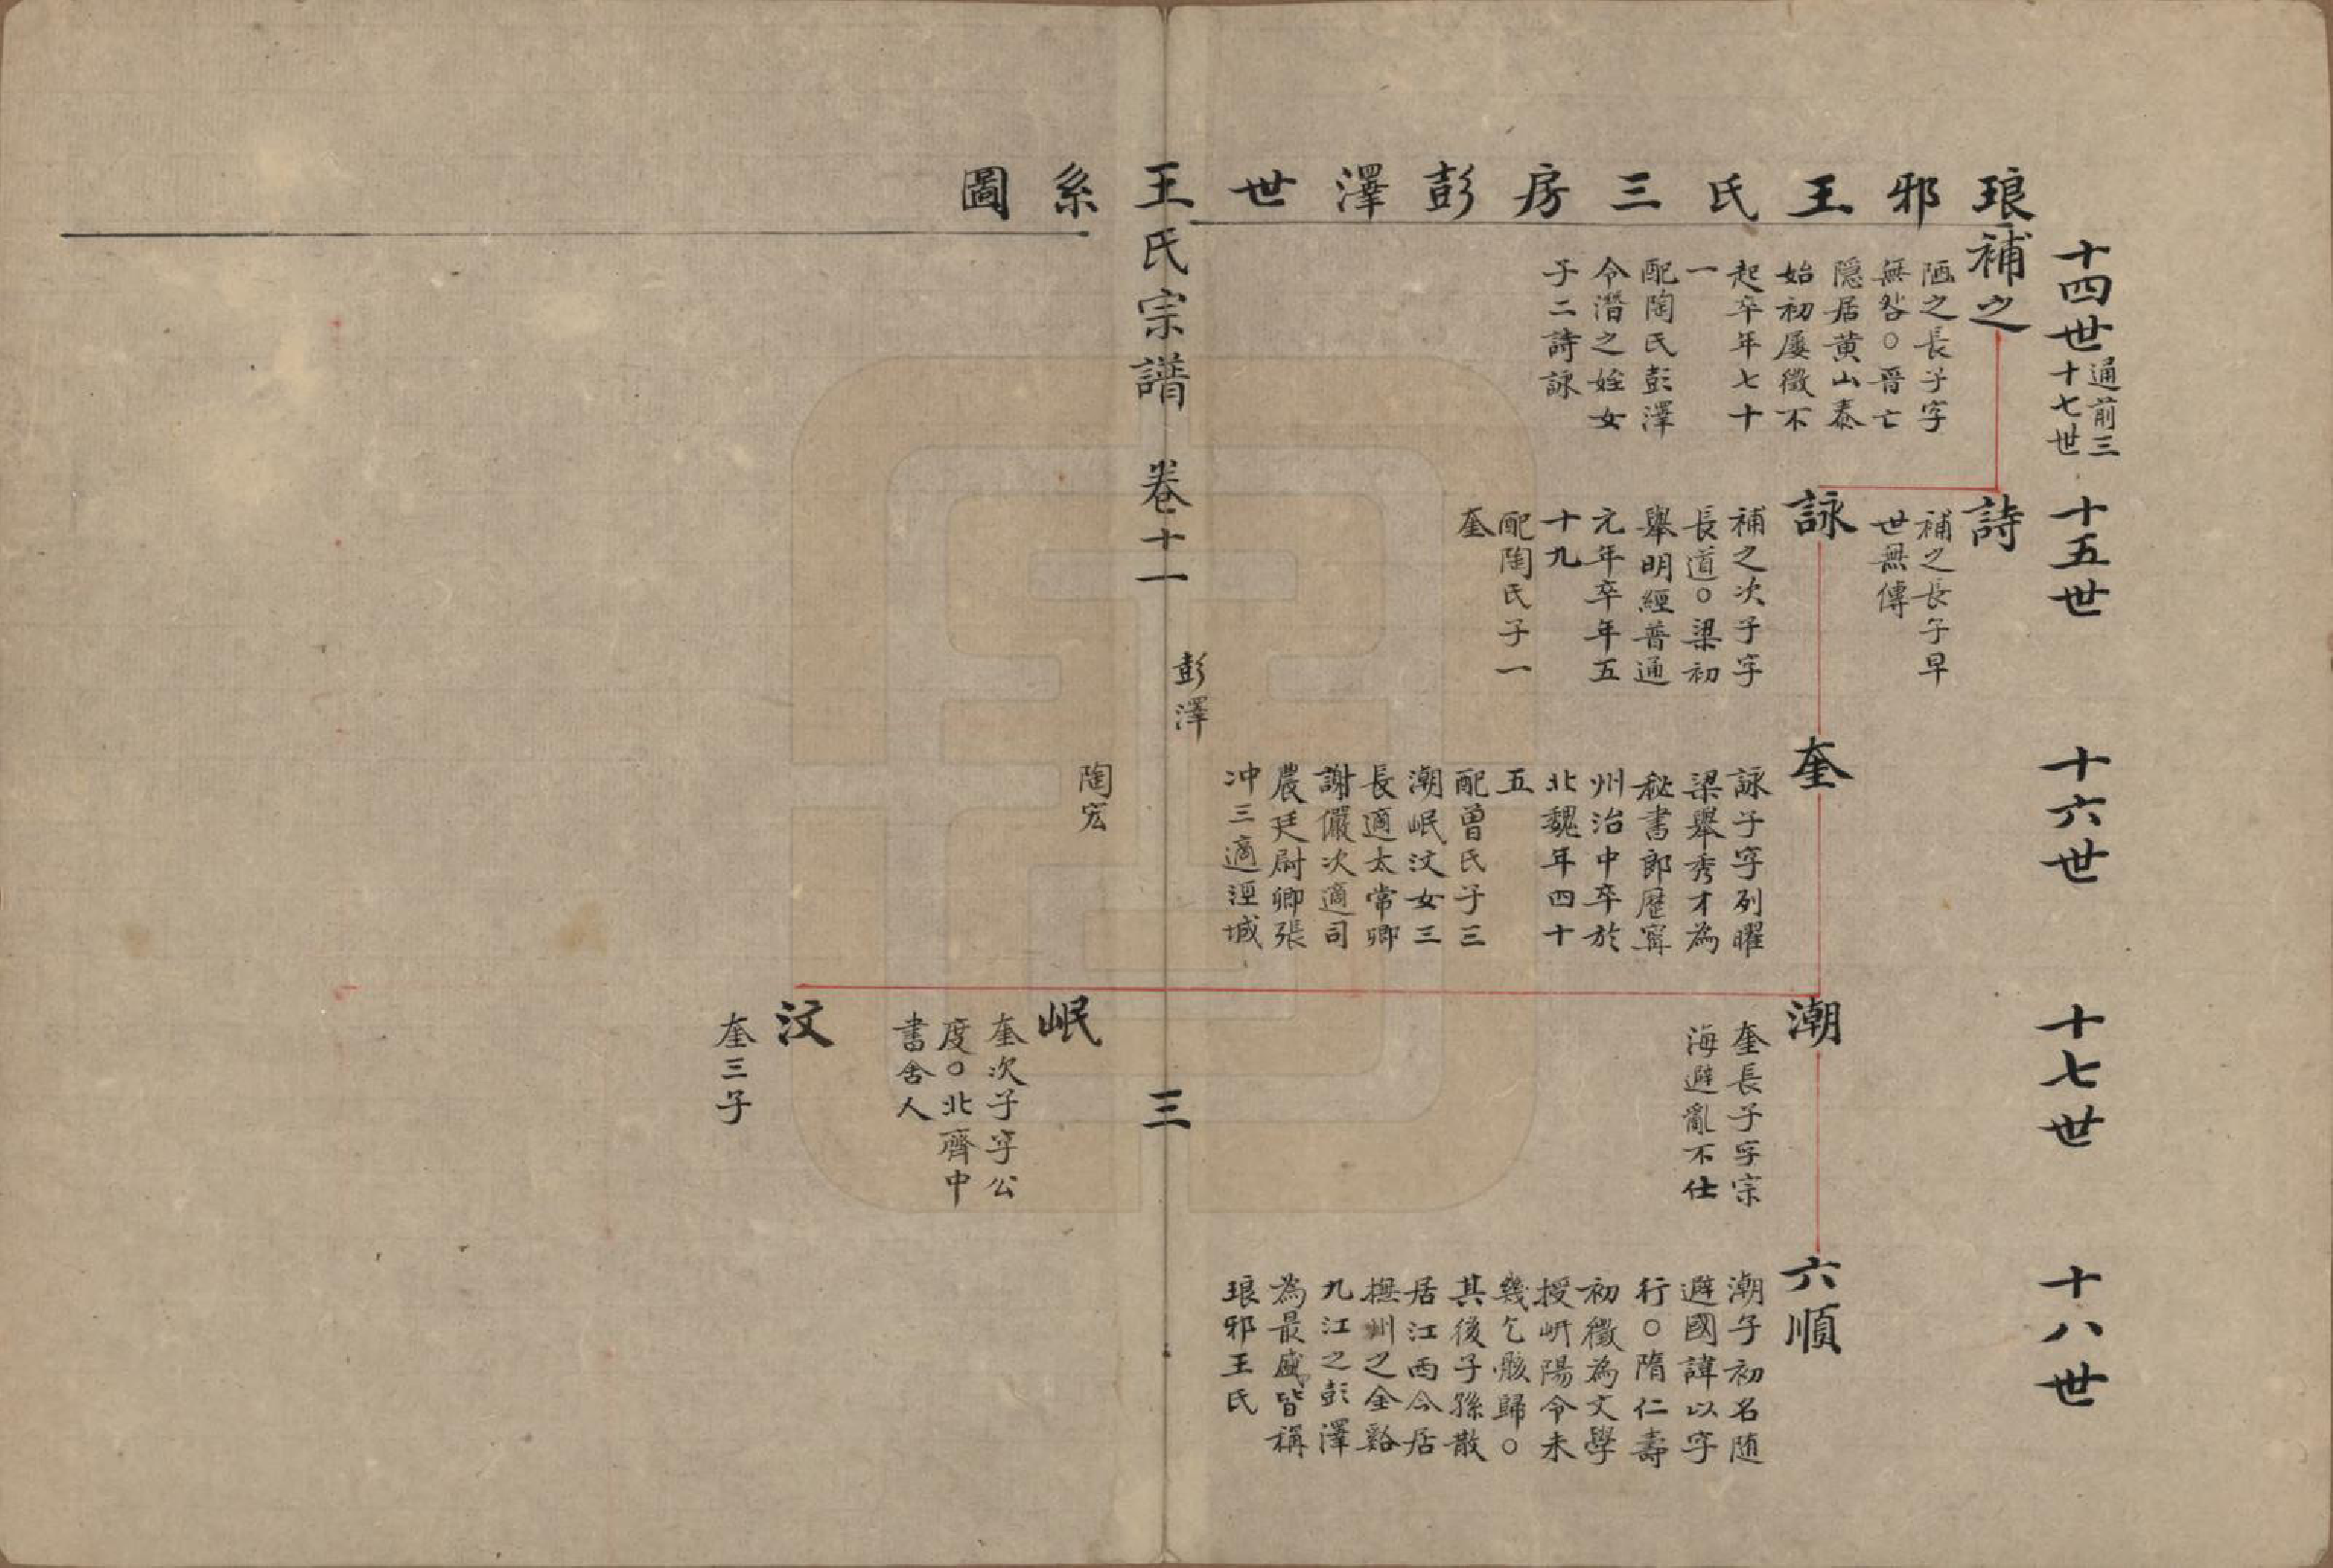 琅邪王氏三房彭澤世系圖
十四世
通前三
十七世
補之
陋之長子字
無咎○晉亡
隱居黃山泰
始初屢徵不
起卒年七十
一
配陶氏彭澤
令潛之姪女
子二詩詠
十五世
詩
補之長子早
世無傳
詠
補之次子字
長道○梁初
舉明經普通
元年卒年五
十九
配陶氏子一
奎
十六世
奎
詠子字列曜
梁舉秀才為
秘書郎歷甯
州治中卒於
北魏年四十
五
配曾氏子三
潮岷汶女三
長適太常卿
謝儼次適司
農廷尉卿張
冲三適涇城
陶宏
十七世
潮
奎長子字宗
海避亂不仕
岷
奎次子字公
度○北齊中
書舍人
汶
奎三子
十八世
六順
潮子初名随
避國諱以字
行○隋仁壽
初徵為文學
授岍陽令未
幾乞骸歸○
其後子孫散
居江西今居
撫州之金谿
九江之彭澤
為最盛皆稱
琅邪王氏
王氏宗譜 卷十一
彭澤
三